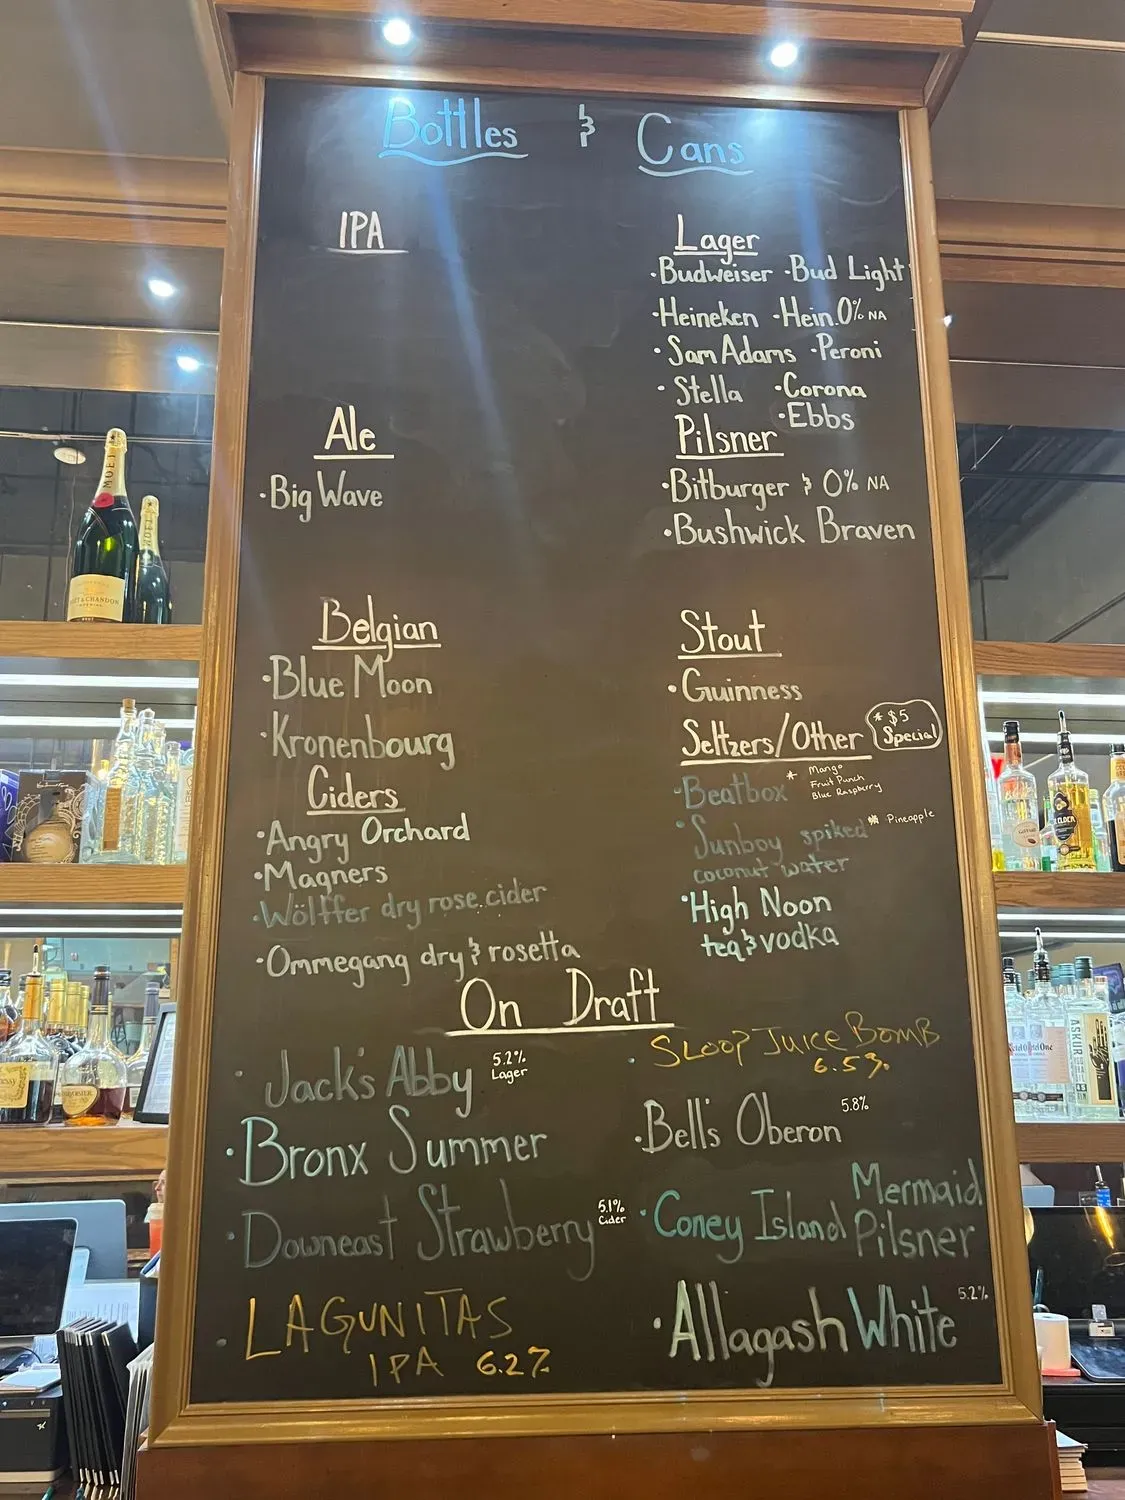 Bottles & Cans
IPA
Ale
·Big Wave
Belgian
·Blue Moon
·Kronenbourg
Ciders
·Angry Orchard
·Magners
·Wölffer dry rose cider
·Ommegang dry & rosetta
Lager
·Budweiser ·Bud Light
·Heineken ·Hein.0% NA
·Sam Adams ·Peroni
·Stella ·Corona
·Ebbs
Pilsner
·Bitburger & 0% NA
·Bushwick Braven
Stout
·Guinness
Seltzers/Other
* $5
Special
·Beatbox
* Mango
Fruit Punch
Blue Raspberry
·Sunboy spiked
coconut water
* Pineapple
·High Noon
tea & vodka
On Draft
·Jack's Abby
5.2%
Lager
·Bronx Summer
·Downeast Strawberry
5.1%
Cider
·LAGUNITAS
IPA 6.2%
·SLOOP JUICE BOMB
6.5%
·Bell's Oberon
5.8%
·Coney Island Mermaid
Pilsner
·Allagash White
5.2%
MOËT
MOËT
MOËT & CHANDON